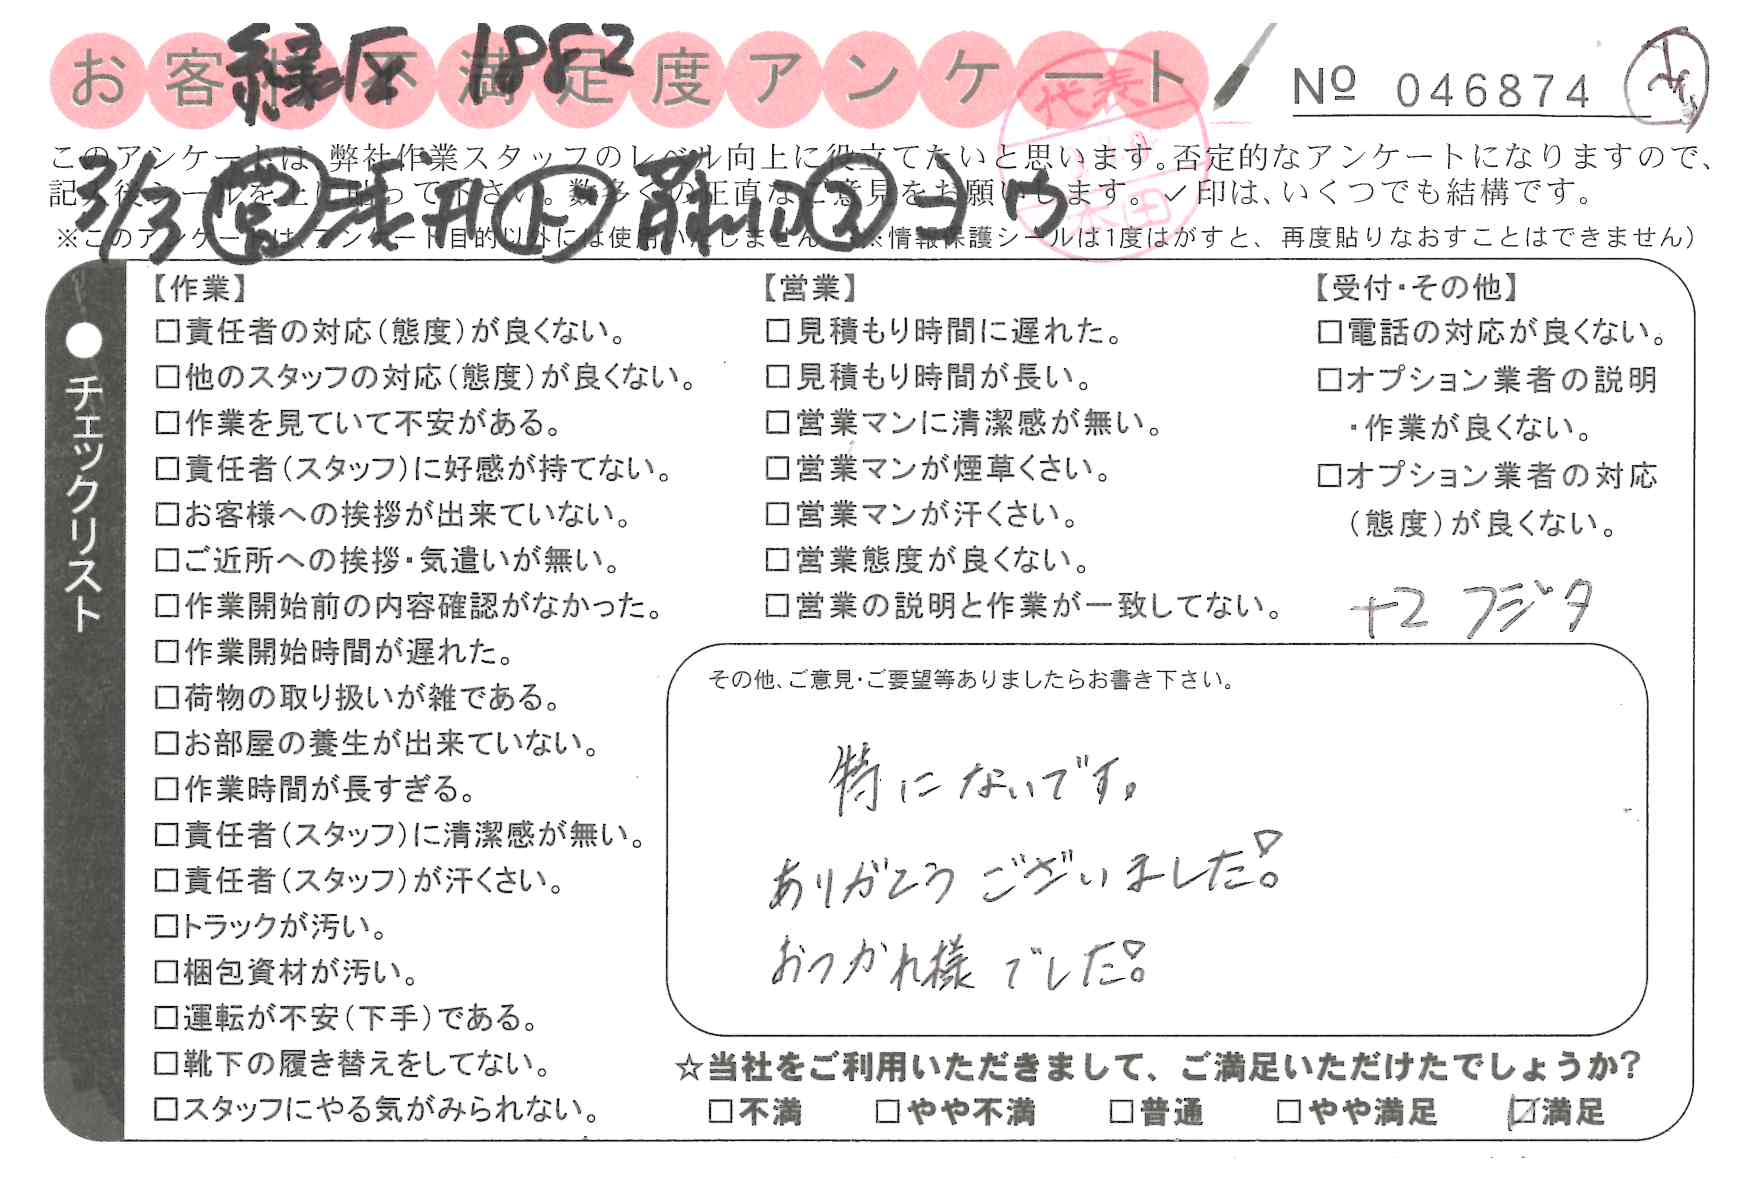 お客様不満足度アンケート
緑区 1882
Nº 046874
このアンケートは、弊社作業スタッフのレベル向上に役立てたいと思います。否定的なアンケートになりますので、
記入後シールを上に貼って下さい。数多くの正直なご意見をお願いします。✓印は、いくつでも結構です。
※このアンケートは、アンケート目的以外には使用いたしません。(※情報保護シールは1度はがすと、再度貼りなおすことはできません)
3/3 営 浅井 ト 2 ヨウ
代表
本田
チェックリスト
【作業】
□責任者の対応(態度)が良くない。
□他のスタッフの対応(態度)が良くない。
□作業を見ていて不安がある。
□責任者(スタッフ)に好感が持てない。
□お客様への挨拶が出来ていない。
□ご近所への挨拶・気遣いが無い。
□作業開始前の内容確認がなかった。
□作業開始時間が遅れた。
□荷物の取り扱いが雑である。
□お部屋の養生が出来ていない。
□作業時間が長すぎる。
□責任者(スタッフ)に清潔感が無い。
□責任者(スタッフ)が汗くさい。
□トラックが汚い。
□梱包資材が汚い。
□運転が不安(下手)である。
□靴下の履き替えをしてない。
□スタッフにやる気がみられない。
【営業】
□見積もり時間に遅れた。
□見積もり時間が長い。
□営業マンに清潔感が無い。
□営業マンが煙草くさい。
□営業マンが汗くさい。
□営業態度が良くない。
□営業の説明と作業が一致してない。
【受付・その他】
□電話の対応が良くない。
□オプション業者の説明
・作業が良くない。
□オプション業者の対応
(態度)が良くない。
+2 フジタ
その他、ご意見・ご要望等ありましたらお書き下さい。
特にないです。
ありがとうございました!
おつかれ様でした!
☆当社をご利用いただきまして、ご満足いただけたでしょうか?
□不満 □やや不満 □普通 □やや満足 ☑満足